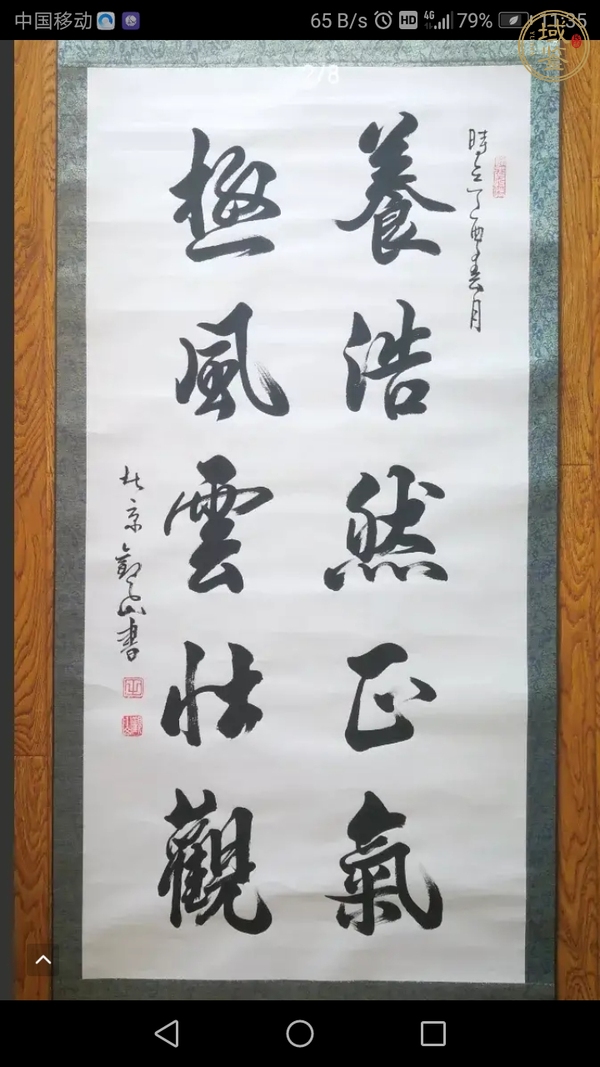 中国移动 65 B/s HD 4G 79% 11:35
2/8
域
時在丁酉春月
養浩然正氣
極風雲壯觀
北京 山書